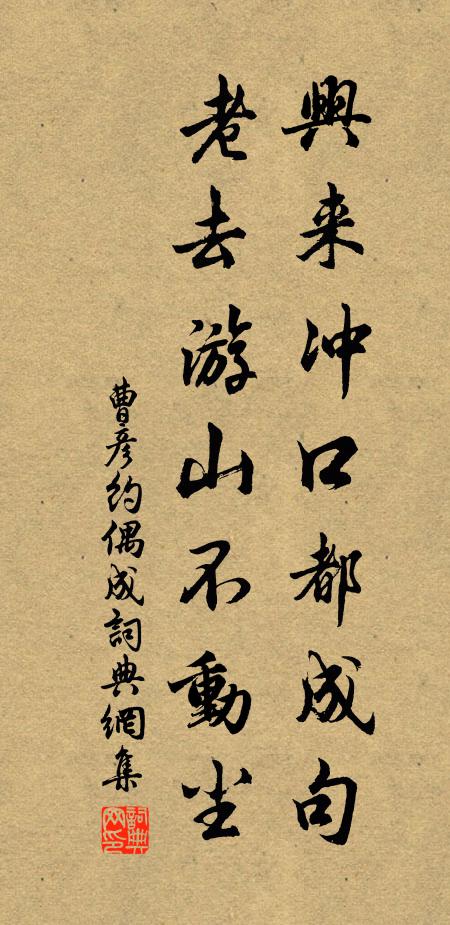 興来冲口都成句
老去游山不動尘
曹彦約偶成詞典網集
詞典网印